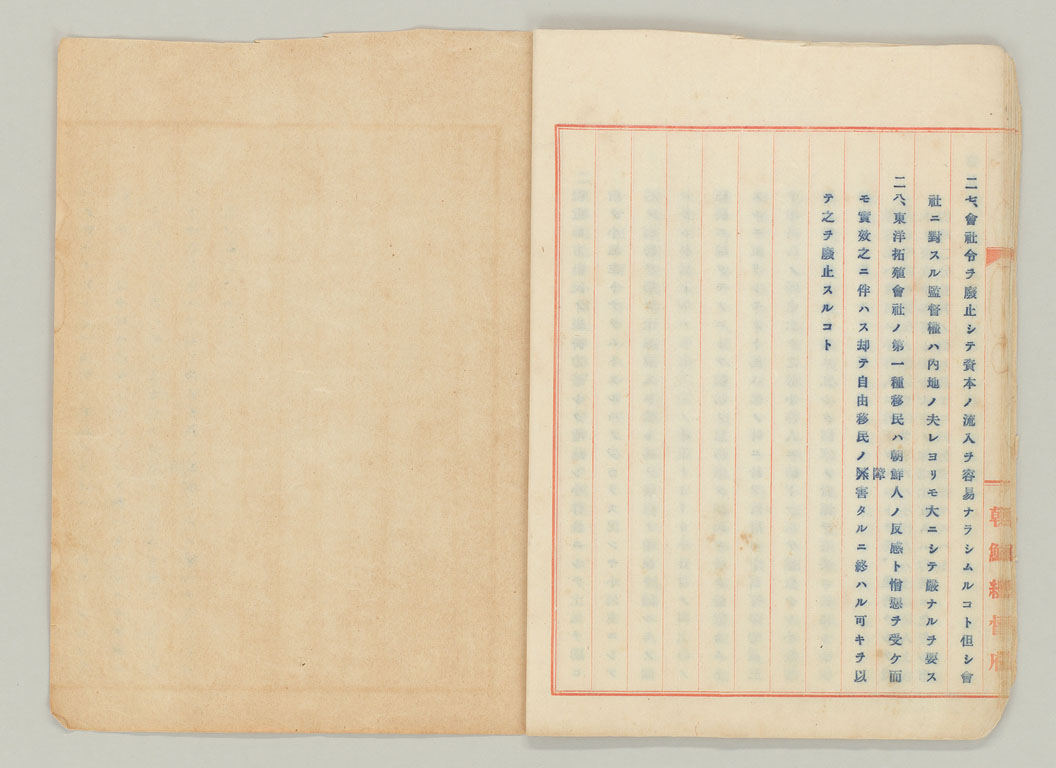 二七、會社令ヲ廢止シテ資本ノ流入ヲ容易ナラシムルコト但シ會
社ニ對スル監督權ハ內地ノ夫レヨリモ大ニシテ嚴ナルヲ要ス
二八、東洋拓殖會社ノ第一種移民ハ朝鮮人ノ反感ト憎惡ヲ受ケ而
モ實效之ニ伴ハス却テ自由移民ノ障害タルニ終ハル可キヲ以
テ之ヲ廢止スルコト
朝鮮總督府